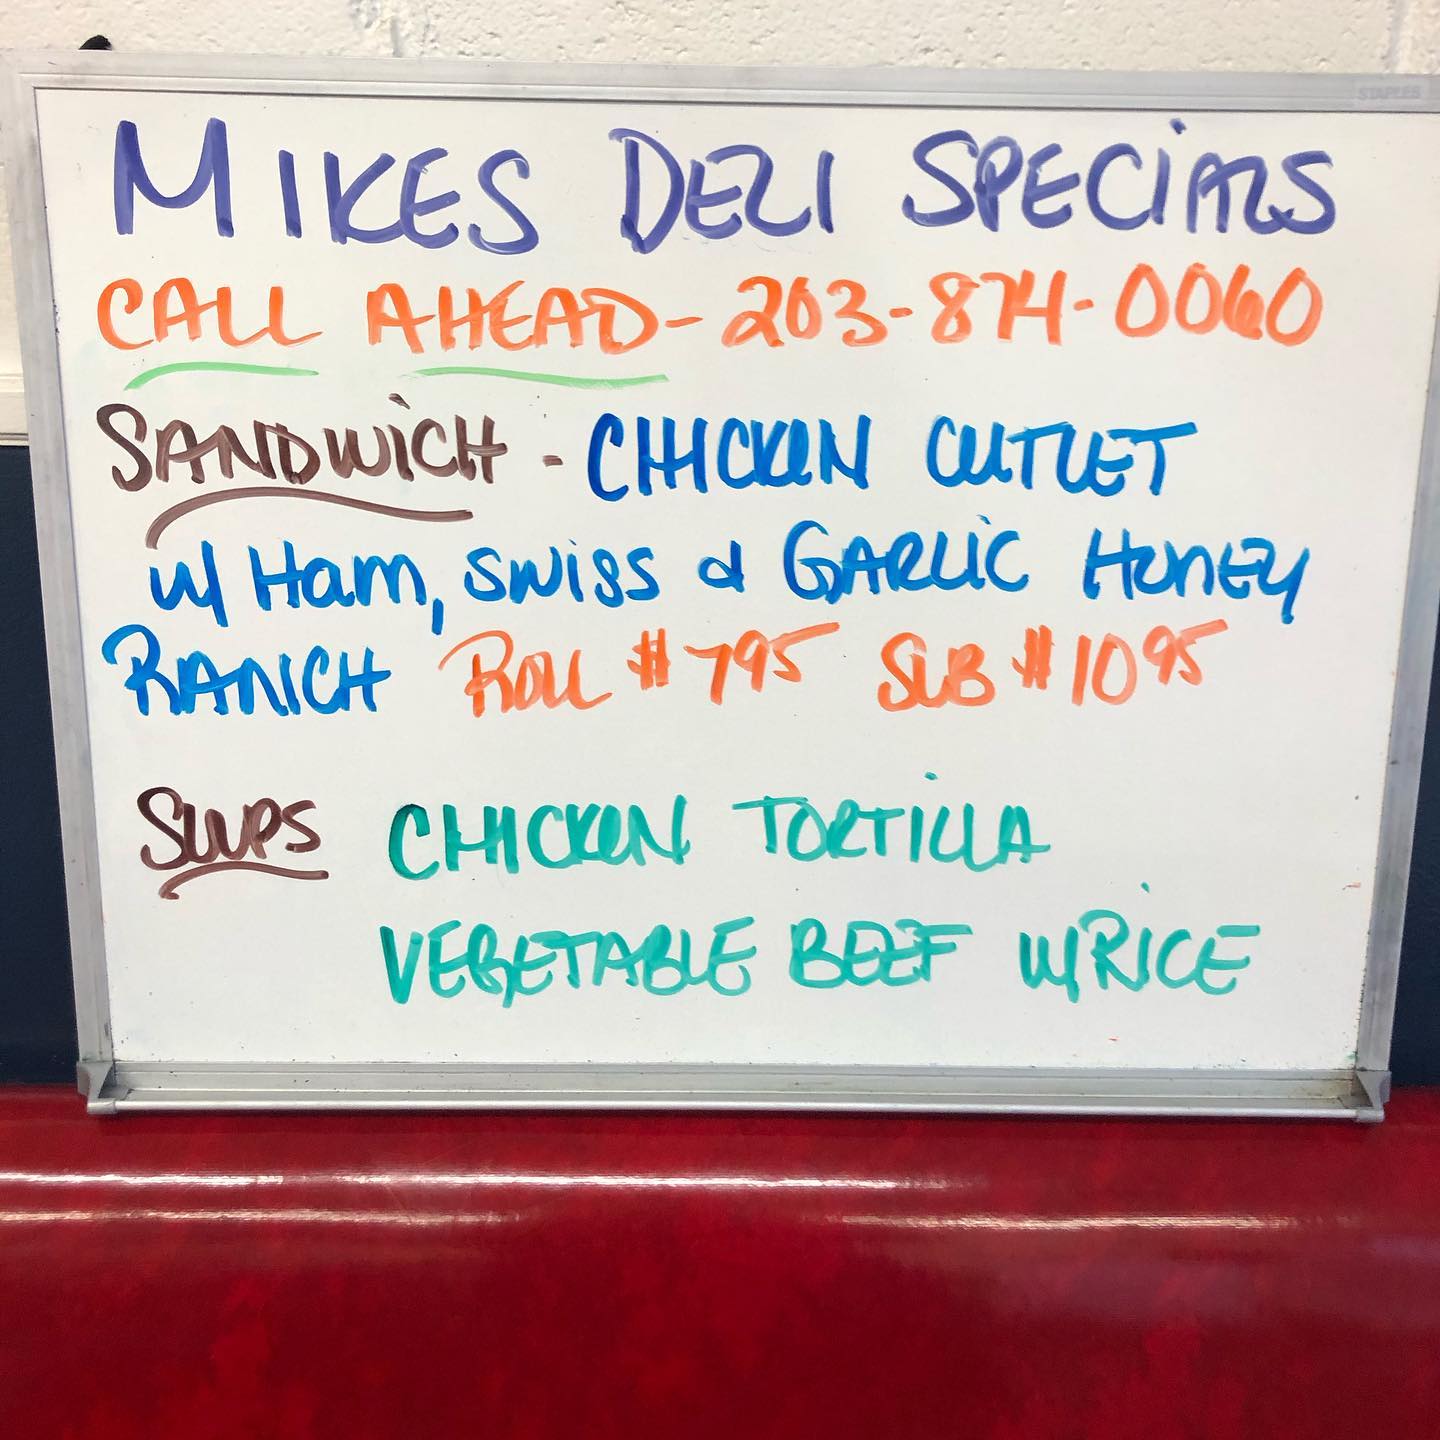 STAPLES
MIKES DELI SPECIALS
CALL AHEAD - 203-874-0060
SANDWICH - CHICKEN CUTLET
w/ Ham, SWISS & GARLIC HONEY
RANCH ROLL #795 SUB #1095
SOUPS CHICKEN TORTILLA
VEGETABLE BEEF w/RICE